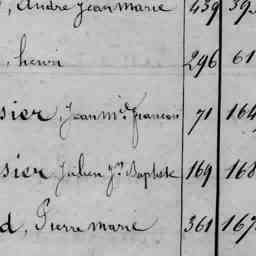 , André Jean Marie 439 39
, henri 296 61
sier, Jean M. françois 71 164
sier Julien Jn Baptiste 169 168
d, Pierre marie 361 167